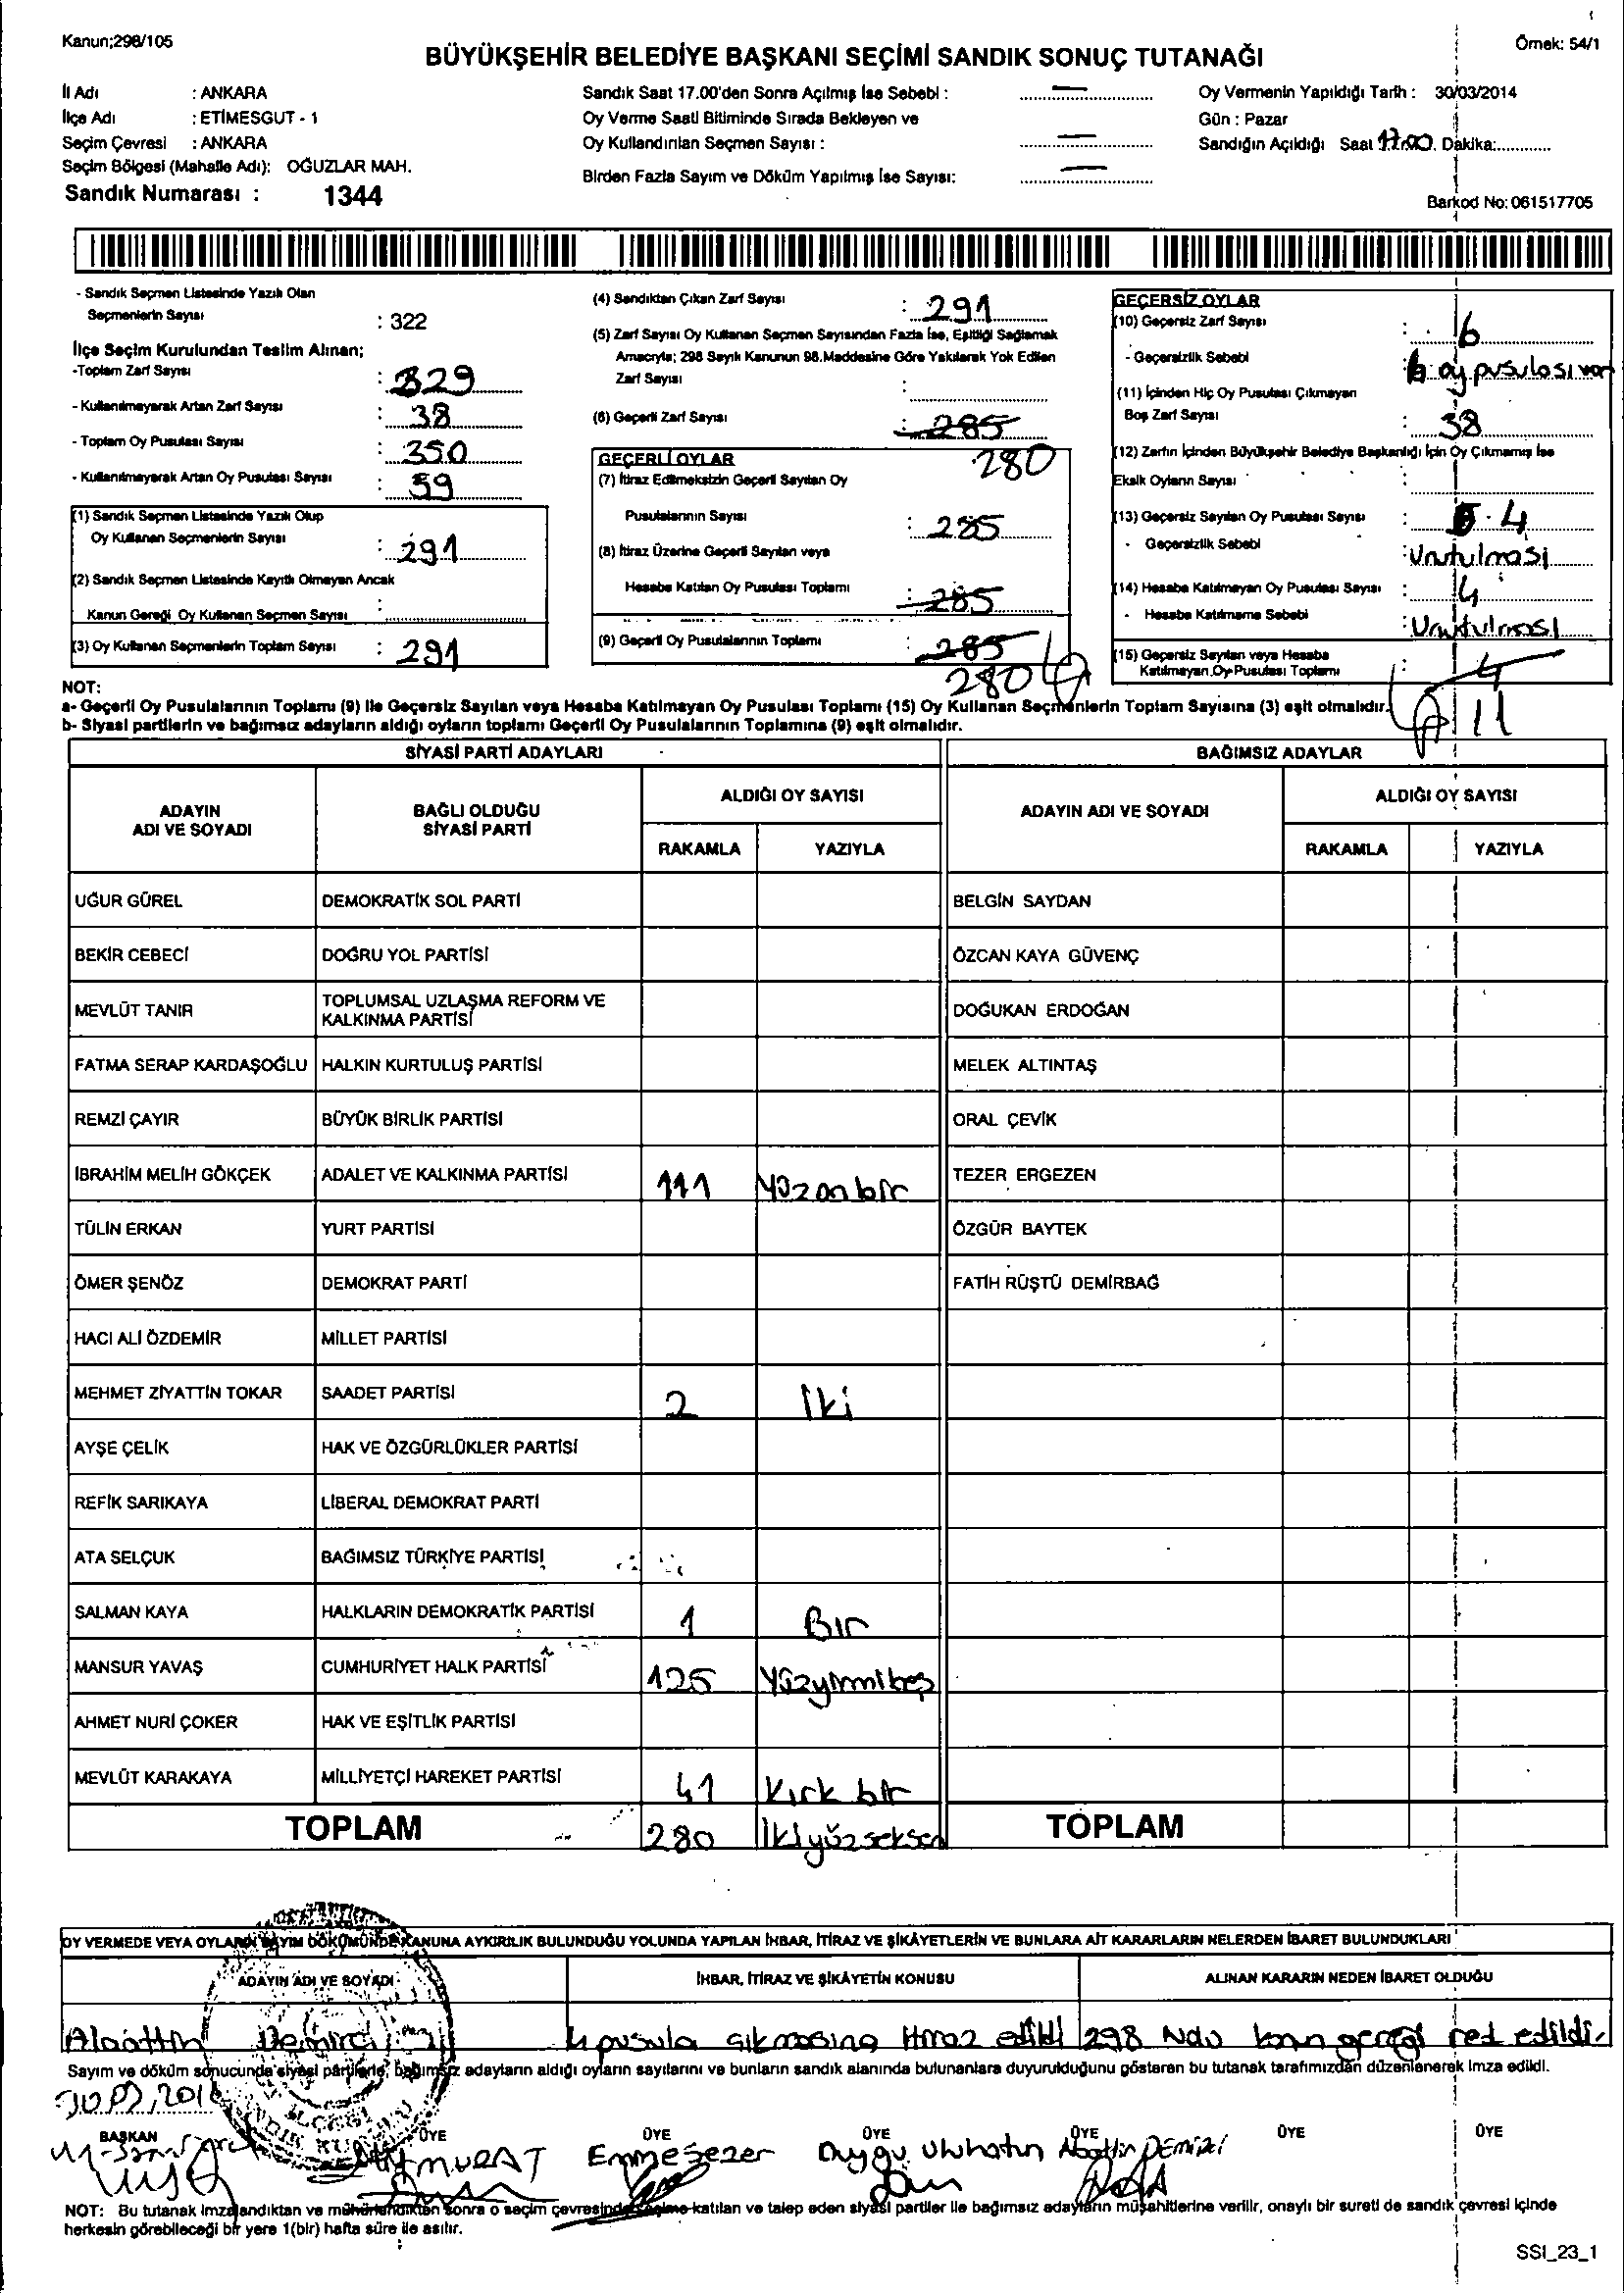 Kanun;298/105
Örnek: 54/1
BÜYÜKŞEHİR BELEDİYE BAŞKANI SEÇİMİ SANDIK SONUÇ TUTANAĞI
İl Adı : ANKARA
İlçe Adı : ETİMESGUT - 1
Seçim Çevresi : ANKARA
Seçim Bölgesi (Mahalle Adı): OĞUZLAR MAH.
Sandık Numarası : 1344
Sandık Saat 17.00'den Sonra Açılmış İse Sebebi :
Oy Verme Saati Bitiminde Sırada Bekleyen ve
Oy Kullandırılan Seçmen Sayısı :
Birden Fazla Sayım ve Döküm Yapılmış İse Sayısı:
Oy Vermenin Yapıldığı Tarih : 30/03/2014
Gün : Pazar
Sandığın Açıldığı Saat 17:00. Dakika:............
Barkod No: 061517705
- Sandık Seçmen Listesinde Yazılı Olan
Seçmenlerin Sayısı : 322
İlçe Seçim Kurulundan Teslim Alınan;
-Toplam Zarf Sayısı : 329
- Kullanılmayarak Artan Zarf Sayısı : 38
- Toplam Oy Pusulası Sayısı : 350
- Kullanılmayarak Artan Oy Pusulası Sayısı : 59
(1) Sandık Seçmen Listesinde Yazılı Olup
Oy Kullanan Seçmenlerin Sayısı : 291
(2) Sandık Seçmen Listesinde Kayıtlı Olmayan Ancak
Kanun Gereği Oy Kullanan Seçmen Sayısı :
(3) Oy Kullanan Seçmenlerin Toplam Sayısı : 291
(4) Sandıktan Çıkan Zarf Sayısı : 291
(5) Zarf Sayısı Oy Kullanan Seçmen Sayısından Fazla İse, Eşitliği Sağlamak
Amacıyla; 298 Sayılı Kanunun 98.Maddesine Göre Yakılarak Yok Edilen
Zarf Sayısı :
(6) Geçerli Zarf Sayısı : 285
280
GEÇERLİ OYLAR
(7) İtiraz Edilmeksizin Geçerli Sayılan Oy
Pusulalarının Sayısı : 285
(8) İtiraz Üzerine Geçerli Sayılan veya
Hesaba Katılan Oy Pusulası Toplamı : 285
(9) Geçerli Oy Pusulalarının Toplamı : 285
280
GEÇERSİZ OYLAR
(10) Geçersiz Zarf Sayısı : 6
- Geçersizlik Sebebi : 6 oy pusulası var
(11) İçinden Hiç Oy Pusulası Çıkmayan
Boş Zarf Sayısı : 38
(12) Zarfın İçinden Büyükşehir Belediye Başkanlığı İçin Oy Çıkmamış İse
Eksik Oyların Sayısı :
(13) Geçersiz Sayılan Oy Pusulası Sayısı : 4
- Geçersizlik Sebebi : Unutulması
(14) Hesaba Katılmayan Oy Pusulası Sayısı : 4
- Hesaba Katılmama Sebebi : Unutulması
(15) Geçersiz Sayılan veya Hesaba
Katılmayan Oy Pusulası Toplamı : 4
11
NOT:
a- Geçerli Oy Pusulalarının Toplamı (9) ile Geçersiz Sayılan veya Hesaba Katılmayan Oy Pusulası Toplamı (15) Oy Kullanan Seçmenlerin Toplam Sayısına (3) eşit olmalıdır.
b- Siyasi partilerin ve bağımsız adayların aldığı oyların toplamı Geçerli Oy Pusulalarının Toplamına (9) eşit olmalıdır.
SİYASİ PARTİ ADAYLARI
BAĞIMSIZ ADAYLAR
ADAYIN ADI VE SOYADI
BAĞLI OLDUĞU SİYASİ PARTİ
ALDIĞI OY SAYISI
RAKAMLA YAZIYLA
ADAYIN ADI VE SOYADI
ALDIĞI OY SAYISI
RAKAMLA YAZIYLA
UĞUR GÜREL DEMOKRATİK SOL PARTİ BELGİN SAYDAN
BEKİR CEBECİ DOĞRU YOL PARTİSİ ÖZCAN KAYA GÜVENÇ
MEVLÜT TANIR TOPLUMSAL UZLAŞMA REFORM VE KALKINMA PARTİSİ DOĞUKAN ERDOĞAN
FATMA SERAP KARDAŞOĞLU HALKIN KURTULUŞ PARTİSİ MELEK ALTINTAŞ
REMZİ ÇAYIR BÜYÜK BİRLİK PARTİSİ ORAL ÇEVİK
İBRAHİM MELİH GÖKÇEK ADALET VE KALKINMA PARTİSİ 111 Yüzonbir TEZER ERGEZEN
TÜLİN ERKAN YURT PARTİSİ ÖZGÜR BAYTEK
ÖMER ŞENÖZ DEMOKRAT PARTİ FATİH RÜŞTÜ DEMİRBAĞ
HACI ALİ ÖZDEMİR MİLLET PARTİSİ
MEHMET ZİYATTİN TOKAR SAADET PARTİSİ 2 İki
AYŞE ÇELİK HAK VE ÖZGÜRLÜKLER PARTİSİ
REFİK SARIKAYA LİBERAL DEMOKRAT PARTİ
ATA SELÇUK BAĞIMSIZ TÜRKİYE PARTİSİ
SALMAN KAYA HALKLARIN DEMOKRATİK PARTİSİ 1 Bir
MANSUR YAVAŞ CUMHURİYET HALK PARTİSİ 125 Yüzyirmibeş
AHMET NURİ ÇOKER HAK VE EŞİTLİK PARTİSİ
MEVLÜT KARAKAYA MİLLİYETÇİ HAREKET PARTİSİ 41 Kırk bir
TOPLAM 280 İkiyüzseksen TOPLAM
OY VERMEDE VEYA OYLARIN SAYIM DÖKÜMÜNDE KANUNA AYKIRILIK BULUNDUĞU YOLUNDA YAPILAN İHBAR, İTİRAZ VE ŞİKÂYETLERİN VE BUNLARA AİT KARARLARIN NELERDEN İBARET BULUNDUKLARI
ADAYIN ADI VE SOYADI İHBAR, İTİRAZ VE ŞİKÂYETİN KONUSU ALINAN KARARIN NEDEN İBARET OLDUĞU
Alaattin Demirci 4 pusula çıkmasına itiraz edildi 298 Nolu kanun gereği red edildi.
Sayım ve döküm sonucunda siyasi partilerle, bağımsız adayların aldığı oyların sayılarını ve bunların sandık alanında bulunanlara duyurulduğunu gösteren bu tutanak tarafımızdan düzenlenerek imza edildi.
BAŞKAN ÜYE ÜYE ÜYE ÜYE ÜYE ÜYE
MURAT Emine Sezer Duygu Uluhatun Alaattin DEMİRCİ
NOT: Bu tutanak imzalandıktan ve mühürlendikten sonra o seçim çevresinde seçime katılan ve talep eden siyasi partiler ile bağımsız adayların müşahitlerine verilir, onaylı bir sureti de sandık çevresi içinde
herkesin görebileceği bir yere 1(bir) hafta süre ile asılır.
SSI_23_1